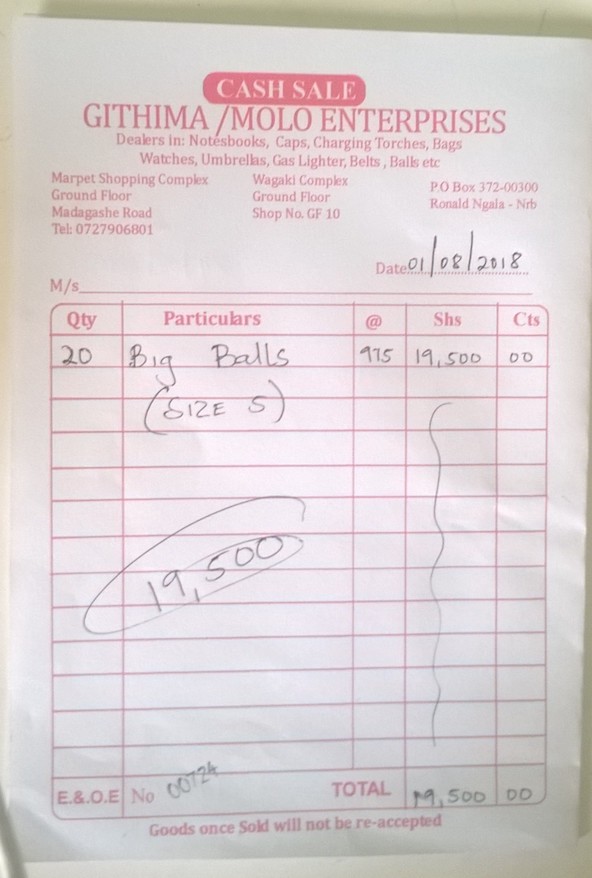 CASH SALE
GITHIMA /MOLO ENTERPRISES
Dealers in: Notesbooks, Caps, Charging Torches, Bags
Watches, Umbrellas, Gas Lighter, Belts , Balls etc
Marpet Shopping Complex
Ground Floor
Madagashe Road
Tel: 0727906801
Wagaki Complex
Ground Floor
Shop No. GF 10
P.O Box 372-00300
Ronald Ngala - Nrb
Date 01/08/2018
M/s
Qty Particulars @ Shs Cts
20 Big Balls 975 19,500 00
(SIZE 5)
19,500
E.&.O.E No 00724 TOTAL 19,500 00
Goods once Sold will not be re-accepted